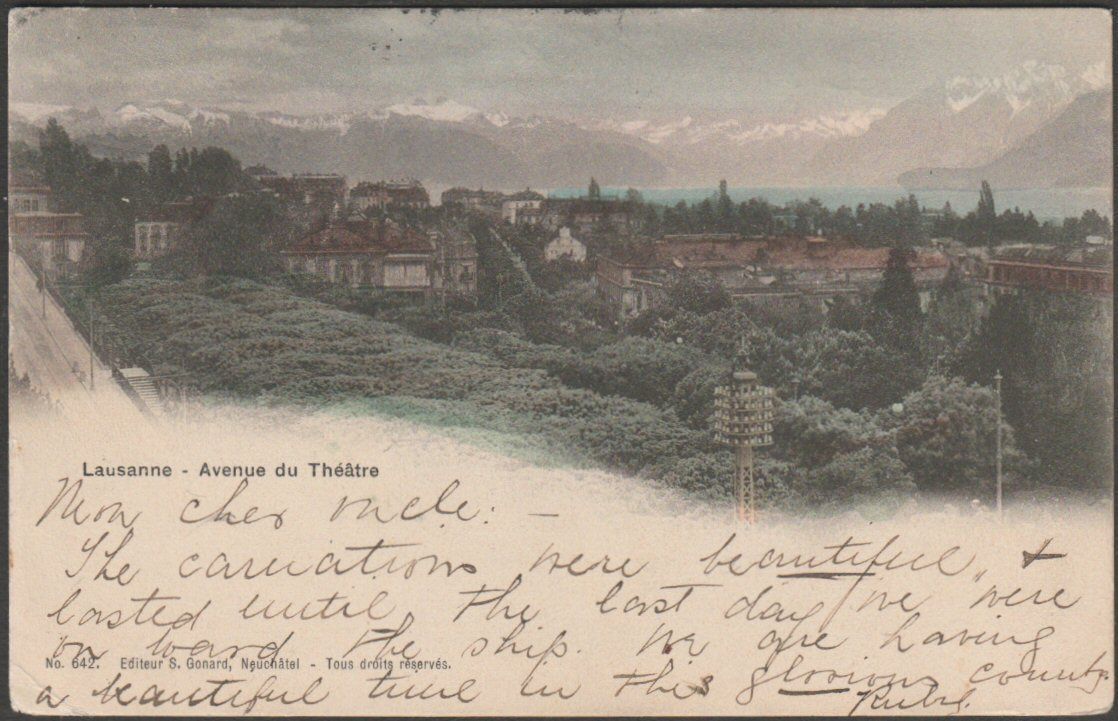 Lausanne - Avenue du Théâtre
Mon cher oncle: -
The carnations were beautiful, +
lasted until the last day we were
on board the ship. We are having
No. 642. Editeur S. Gonard, Neuchâtel - Tous droits réservés.
a beautiful time in this glorious country.